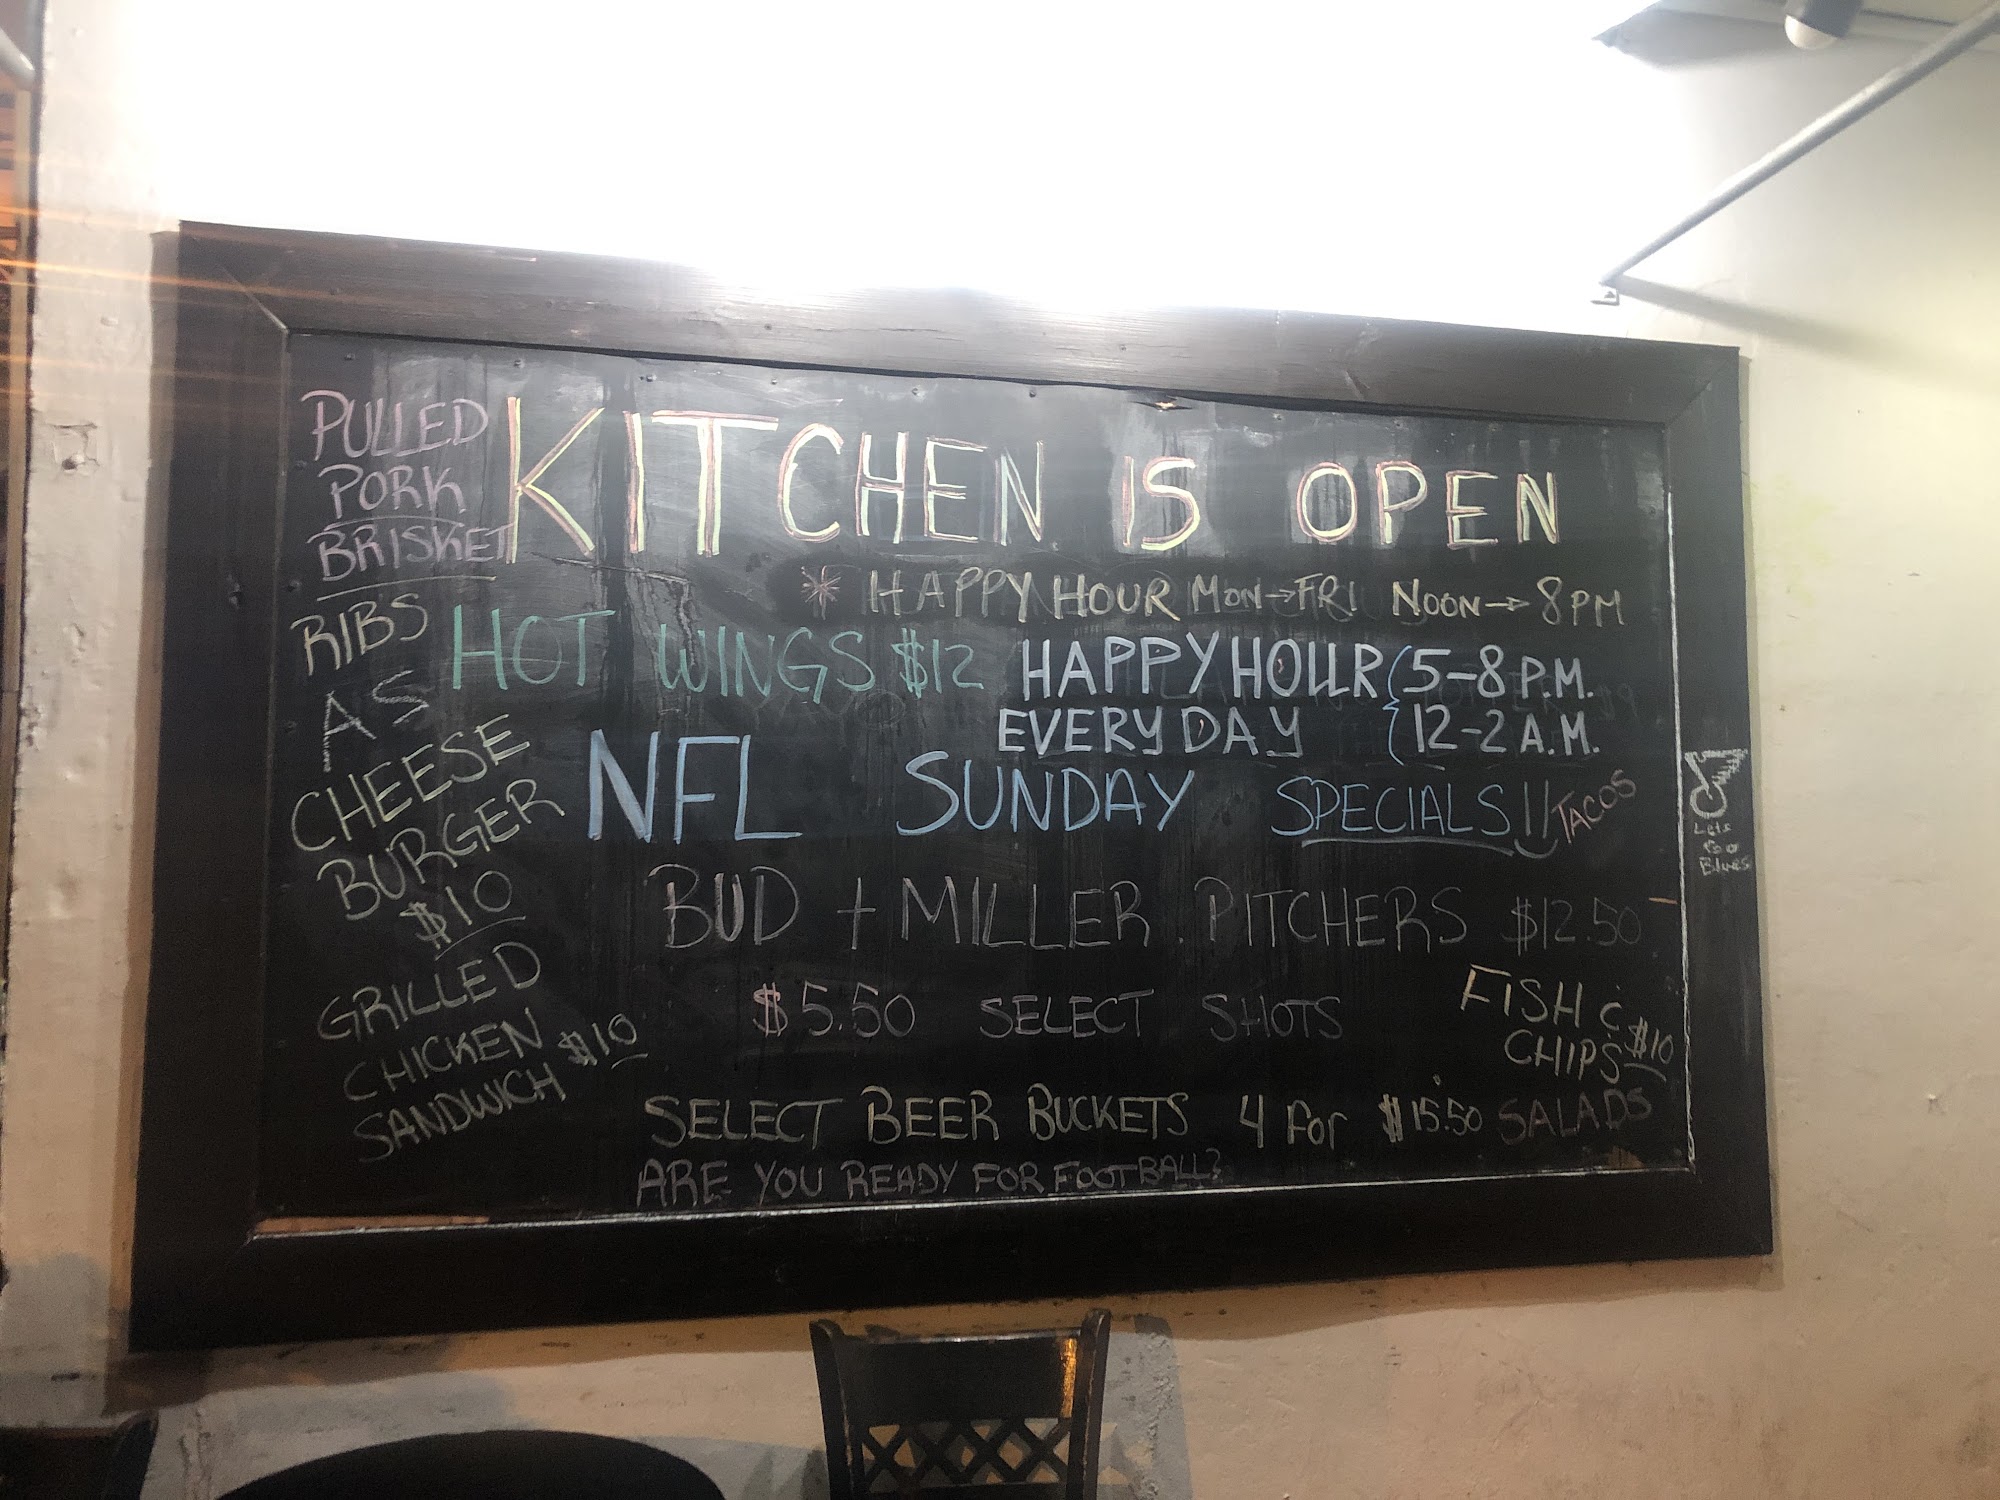 KITCHEN IS OPEN
* HAPPY HOUR MON→FRI NOON→8PM
HAPPY HOUR 5-8 P.M.
EVERY DAY 12-2 A.M.
PULLED
PORK
BRISKET
RIBS
AS
CHEESE
BURGER
$10
GRILLED
CHICKEN
SANDWICH $10
HOT WINGS $12
NFL SUNDAY SPECIALS!!
TACOS
BUD + MILLER PITCHERS $12.50
$5.50 SELECT SHOTS
FISH &
CHIPS $10
SELECT BEER BUCKETS 4 For $15.50
SALADS
ARE YOU READY FOR FOOTBALL?
Lets
Go
Blues